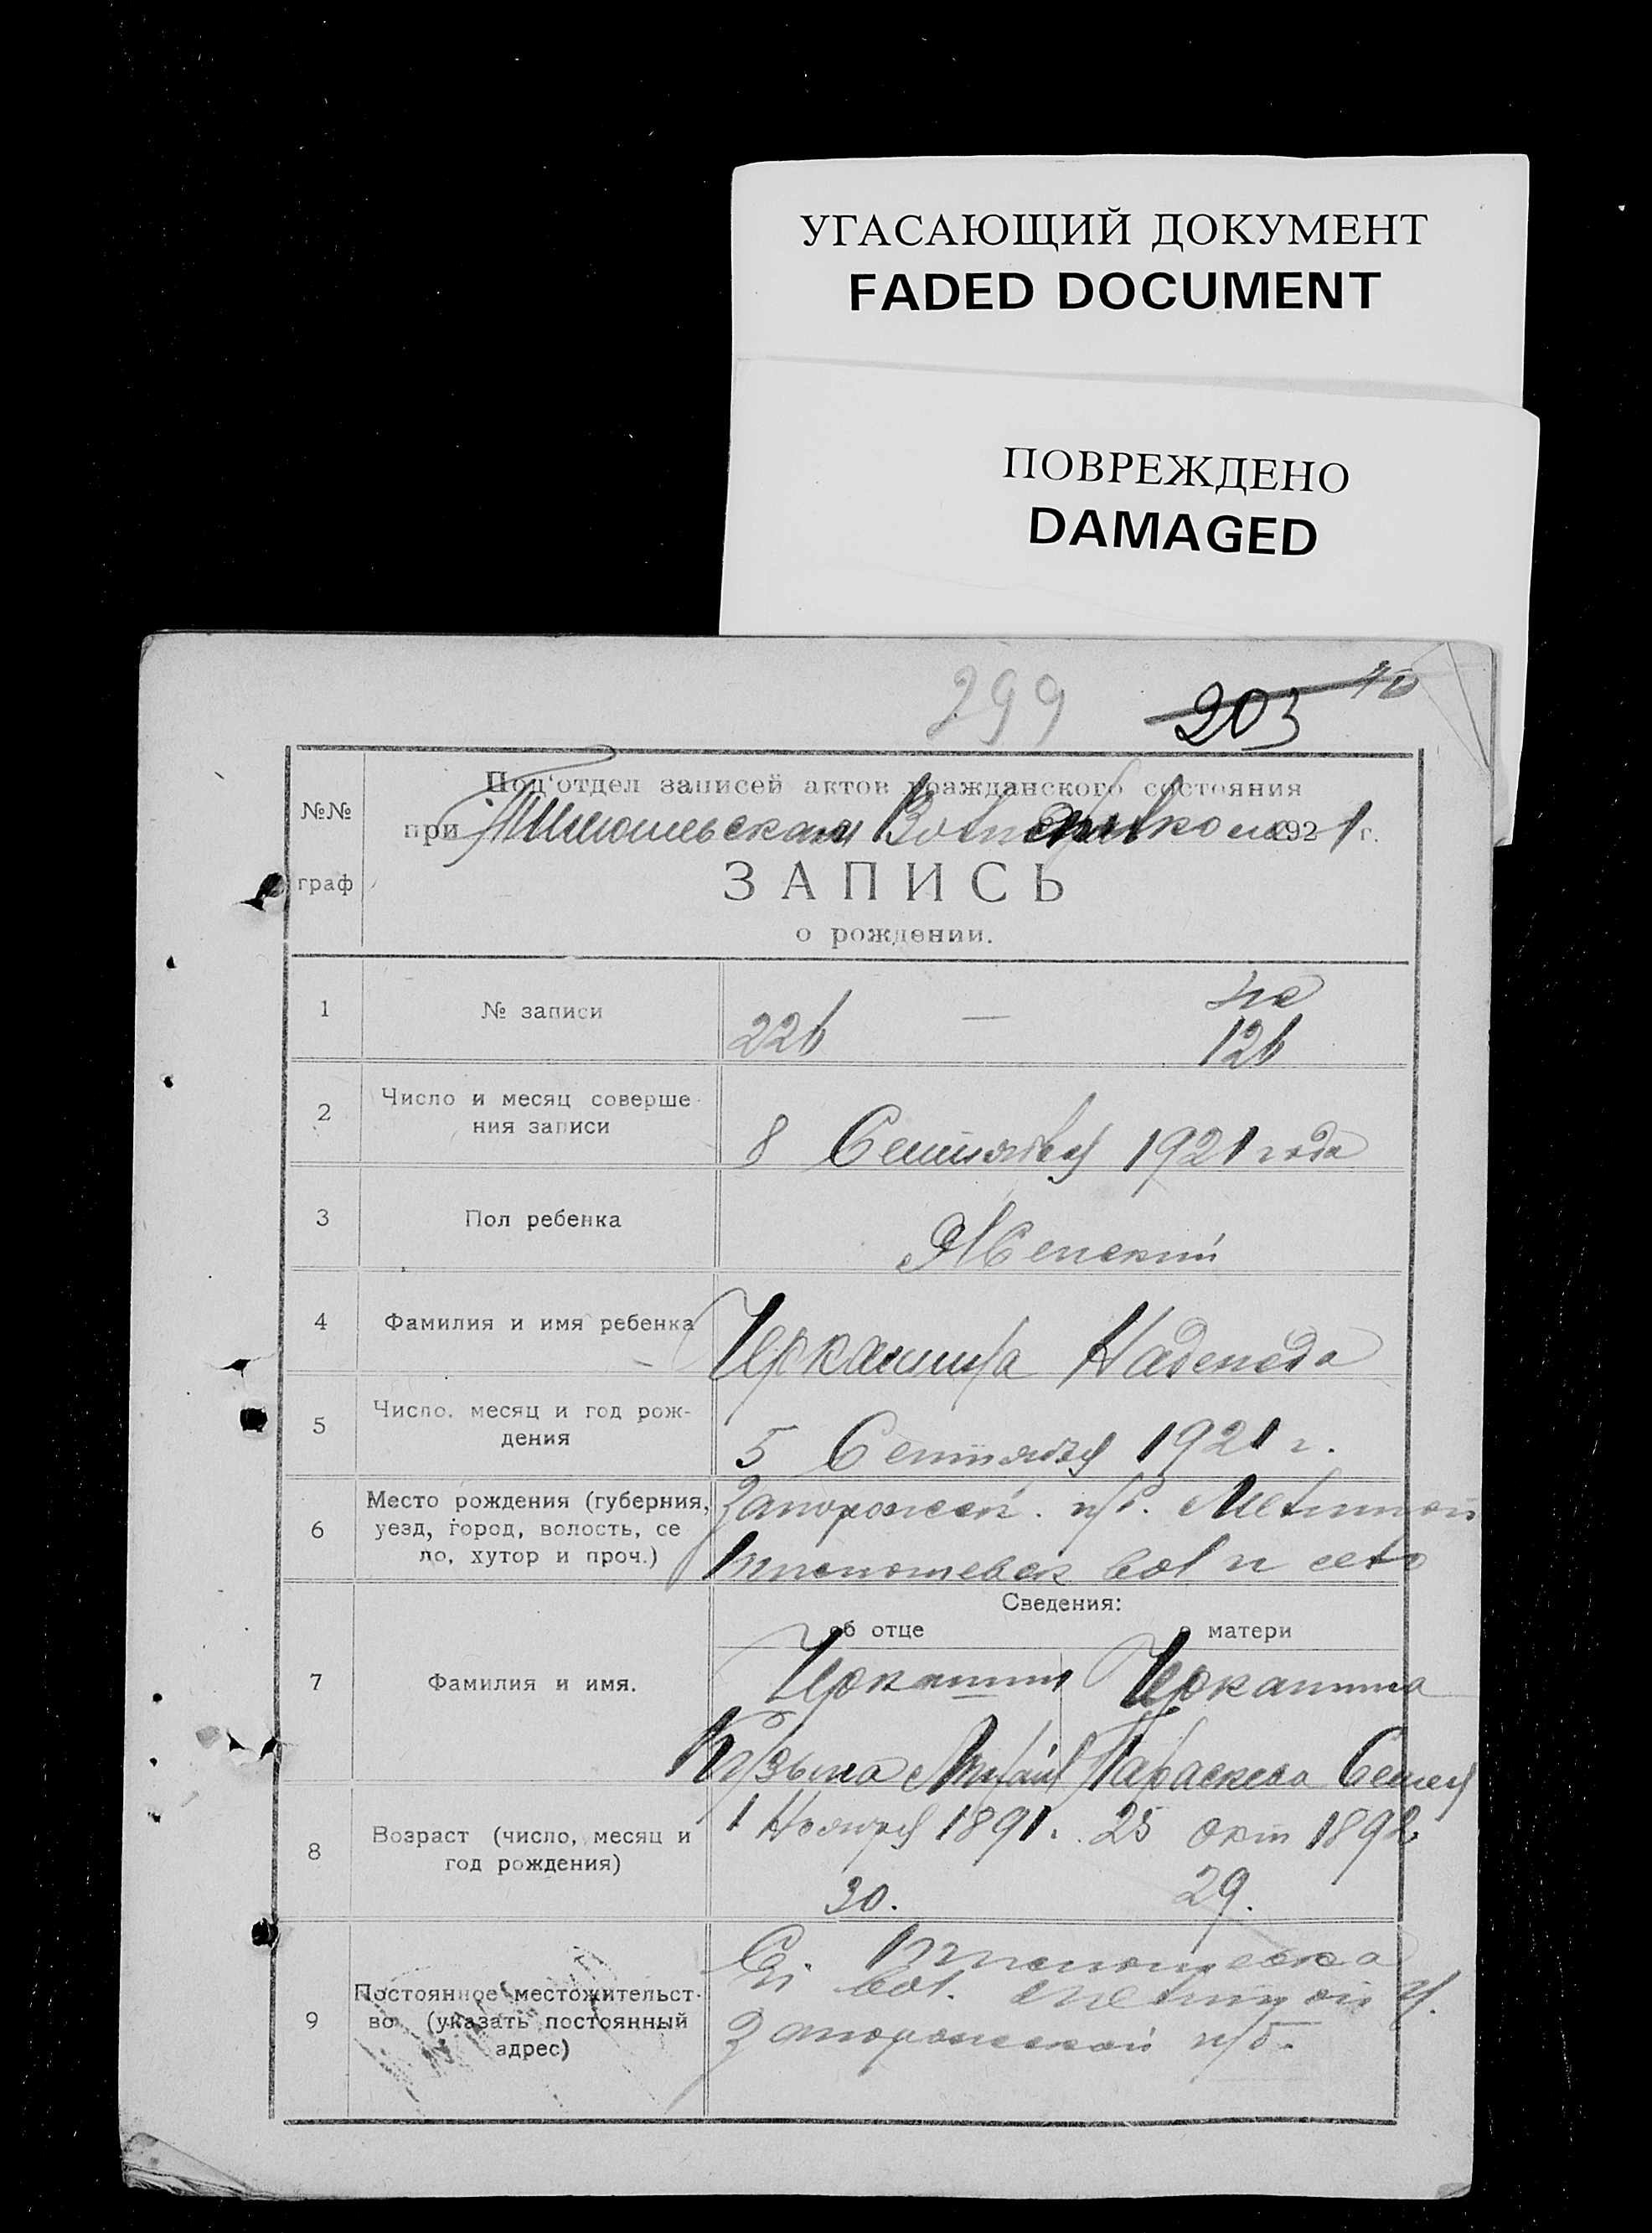 УГАСАЮЩИЙ ДОКУМЕНТ
FADED DOCUMENT
ПОВРЕЖДЕНО
DAMAGED
299 203 40
№№
граф
Под‘отдел записей актов гражданского состояния
при Волисполкома 1921 г.
ЗАПИСЬ
о рождении.
1 № записи 226 — 126
2 Число и месяц соверше-
ния записи
8 Сентября 1921 года
3 Пол ребенка Женский
4 Фамилия и имя ребенка Черкашина Надежда
5 Число, месяц и год рож-
дения
5 Сентября 1921 г.
6 Место рождения (губерния,
уезд, город, волость, се
ло, хутор и проч.)
Запорожск. губ. Мелитпой
Тимошевск вол и село
Сведения:
об отце о матери
7 Фамилия и имя.
Черкашин Черкашина
Кузьма Параскева Семен
8 Возраст (число, месяц и
год рождения)
1 Ноября 1891. 25 Окт 1892
30. 29.
9 Постоянное местожительст-
во (указать постоянный
адрес)
С. Тимошевка
вол. Мелитпой у.
Запорожской губ.